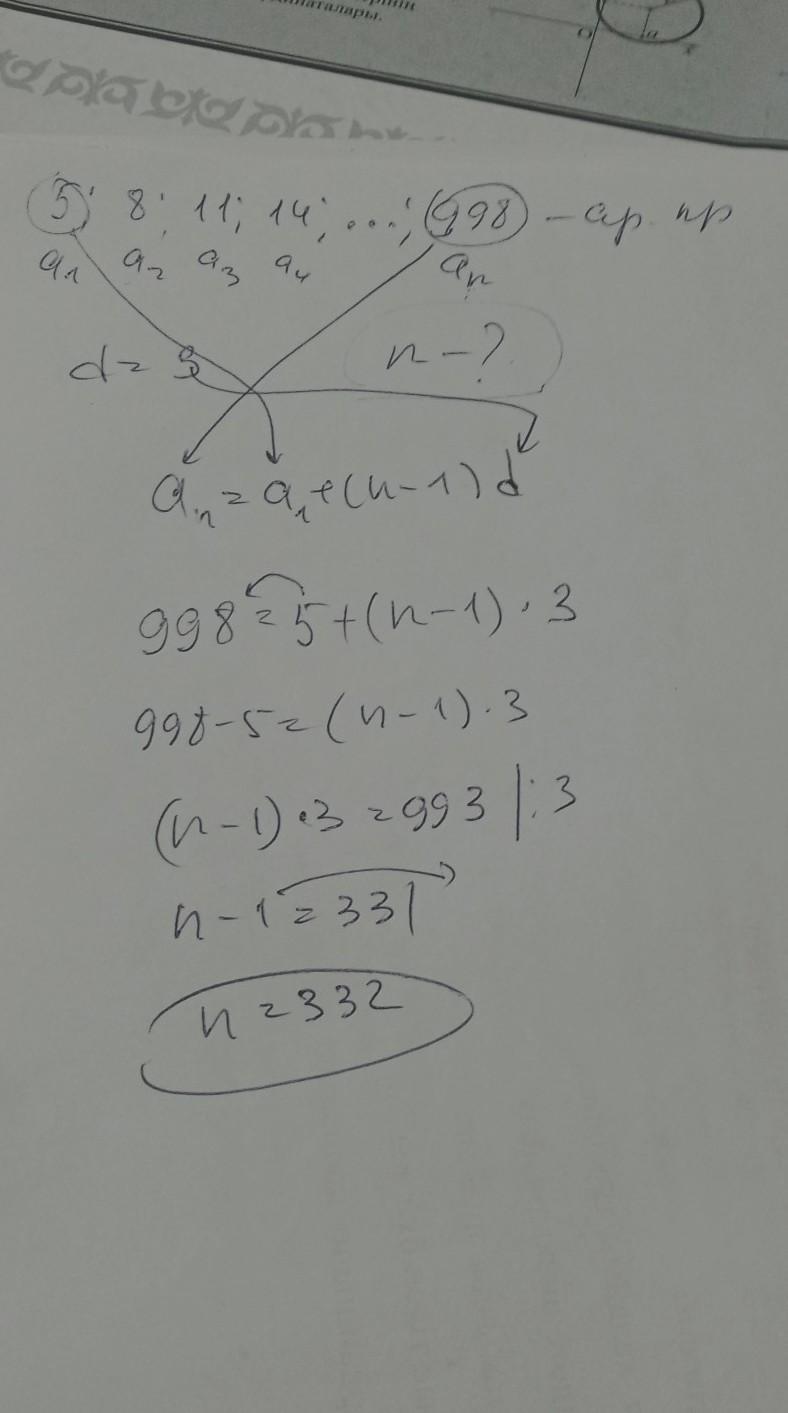 наталары.
O a x
5; 8; 11; 14; ...; 998 – ар. пр
a₁ a₂ a₃ a₄ aₙ
d = 3 n – ?
aₙ = a₁ + (n – 1) d
998 = 5 + (n – 1) · 3
998 – 5 = (n – 1) · 3
(n – 1) · 3 = 993 | : 3
n – 1 = 331
n = 332